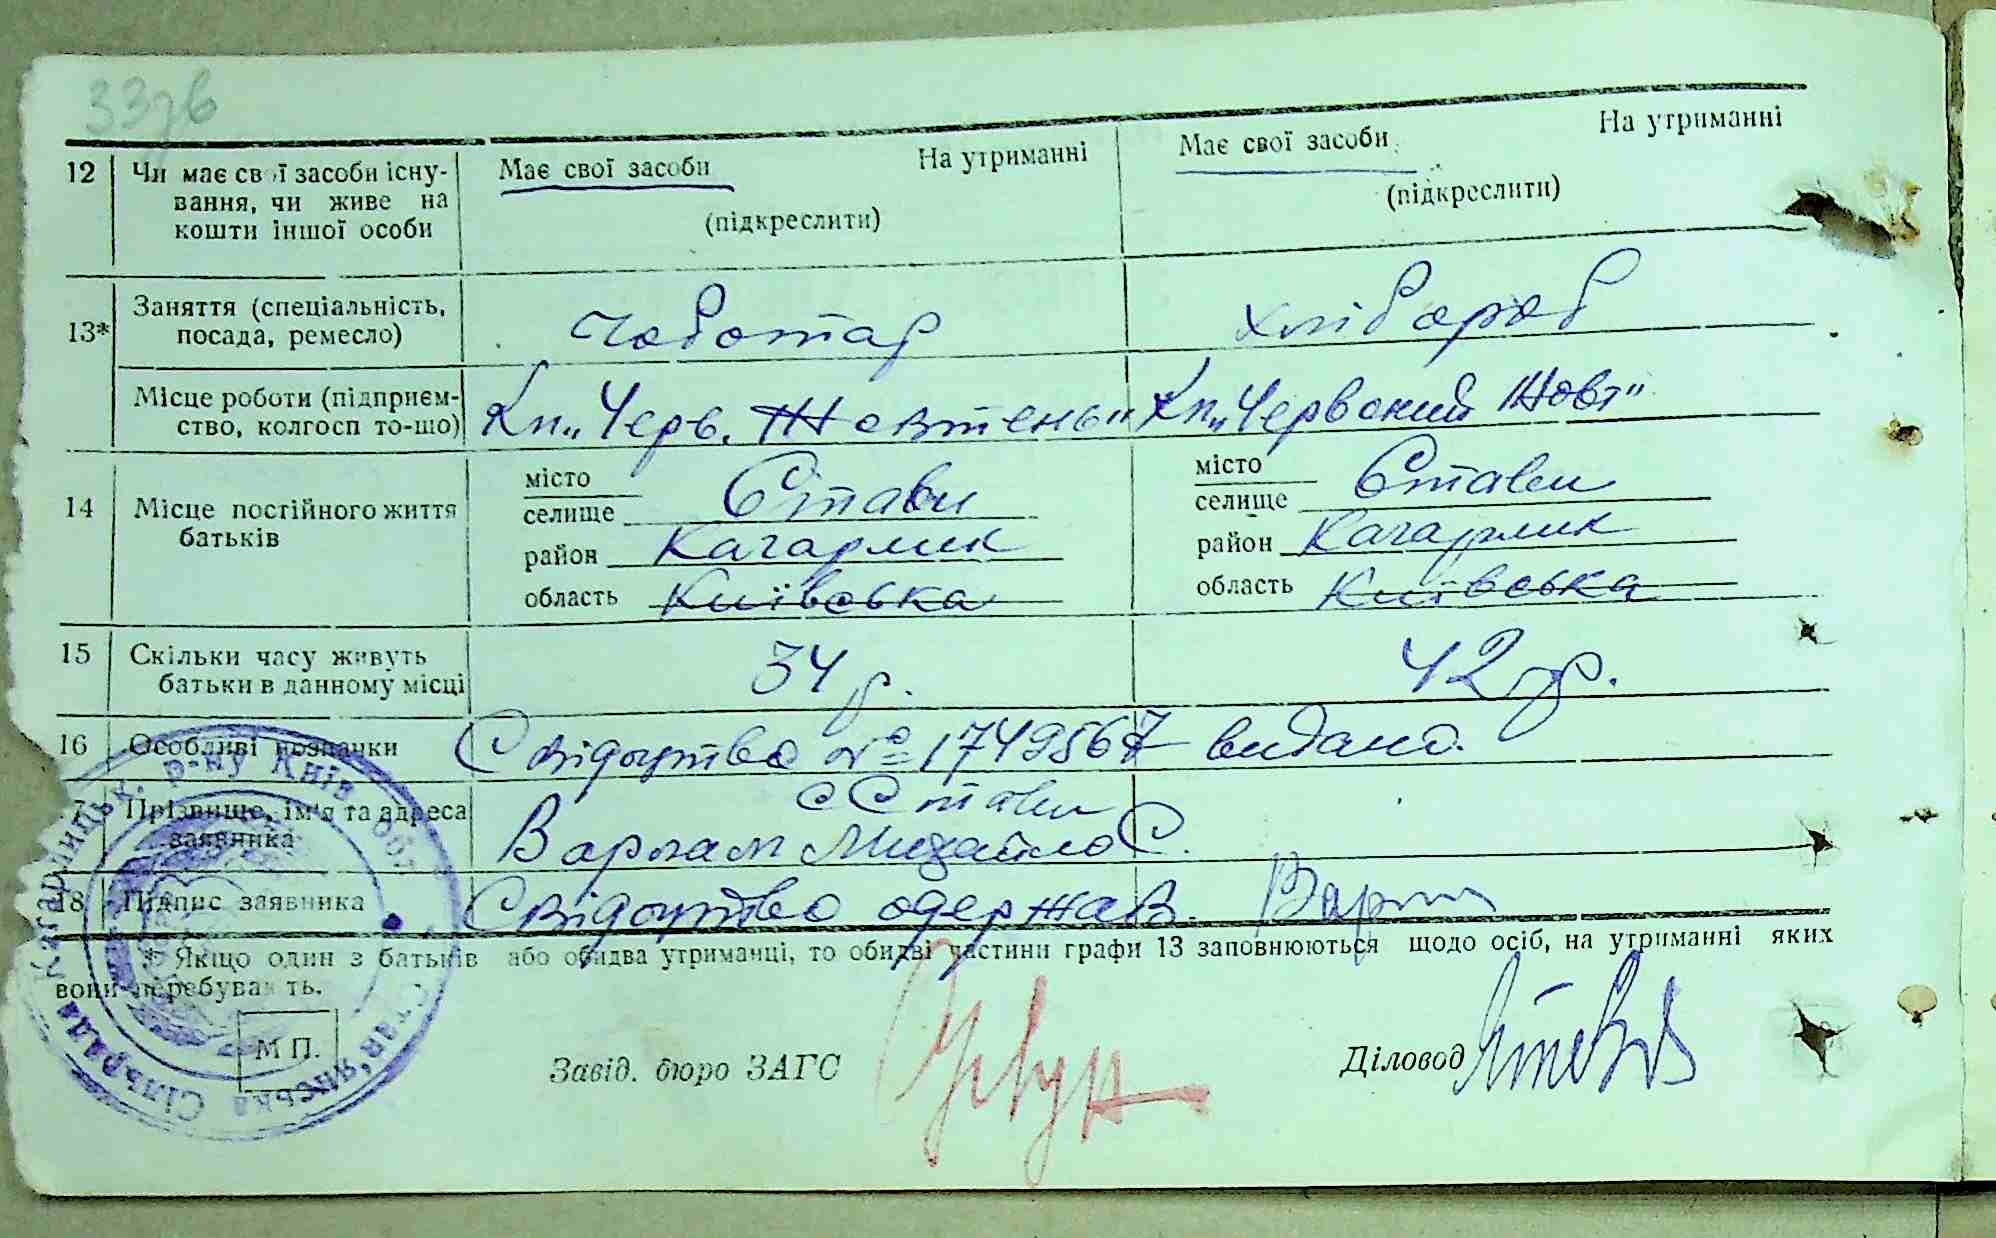 33зв
12 Чи має свої засоби існу- Має свої засоби На утриманні Має свої засоби На утриманні
вання, чи живе на (підкреслити) (підкреслити)
кошти іншої особи
13* Заняття (спеціальність, чоботар хлібороб
посада, ремесло)
Місце роботи (підприєм- Кп. „Черв. Жовтень" Кп. „Червоний Жовт"
ство, колгосп то-що)
14 Місце постійного життя місто Стави місто Стави
батьків селище селище
район Кагарлик район Кагарлик
область Київська область Київська
15 Скільки часу живуть 34 р. 42 р.
батьки в данному місці
16 Особливі позначки Свідоцтво № 1749567 видано.
17 Прізвище, ім'я та адреса с Стави
заявника Варлам Михайло С.
18 Підпис заявника Свідоцтво одержав.
* Якщо один з батьків або обидва утриманці, то обидві частини графи 13 заповнюються щодо осіб, на утриманні яких
вони перебувають.
М П.
Завід. бюро ЗАГС Діловод
Кагарлицьк. р-ну Київ. обл. Став'янська СільРада